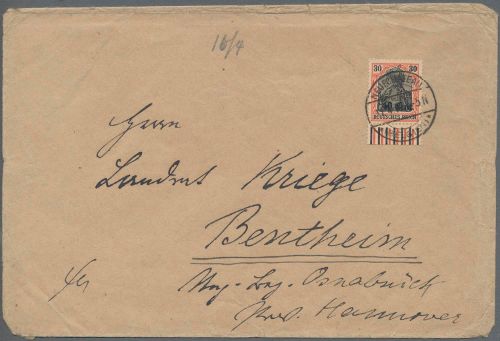 16/4
30 30
DEUTSCHES REICH
Herrn
Landrat Kriege
Bentheim
Osnabrück
Prov. Hannover